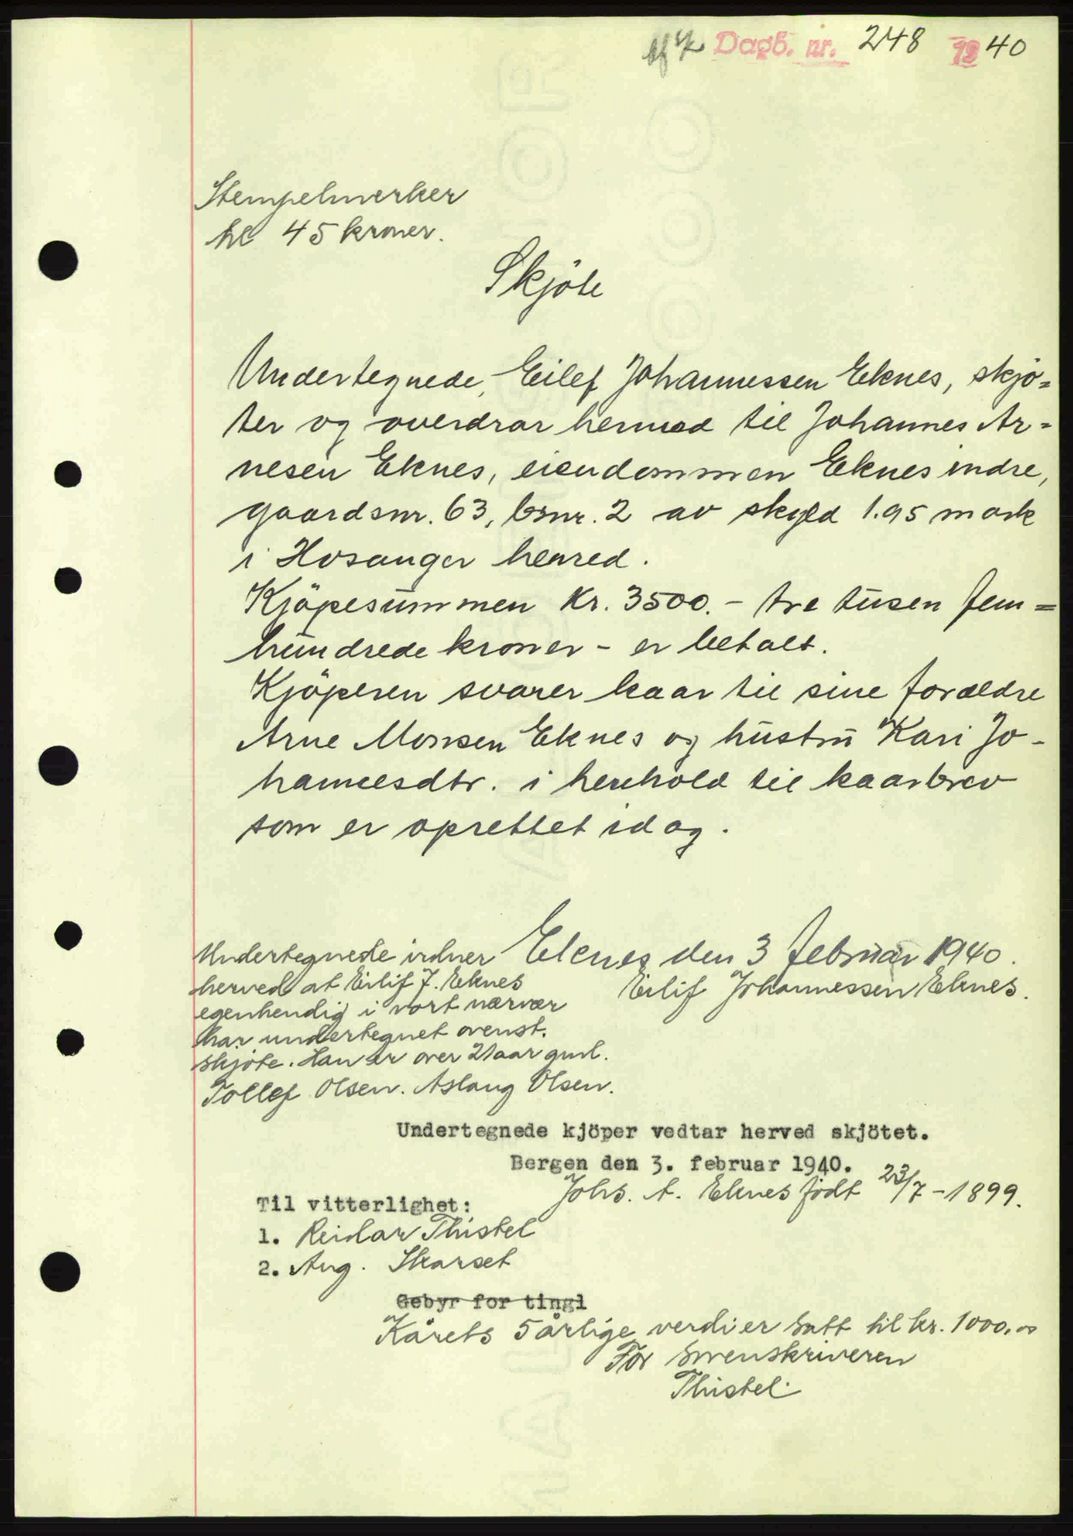 Dagb. nr. 248 1940
Stempelmerker
kr 45 kroner.
Skjöte
Undertegnede, Eilef Johannessen Eknes, skjö=
ter og overdrar hermed til Johannes Ar=
nesen Eknes, eiendommen Eknes indre,
gaardsnr. 63, bsnr. 2 av skyld 1.95 mark
i Hosanger herred.
Kjöpesummen Kr. 3500.- tre tusen fem=
hundrede kroner - er betalt.
Kjöperen svarer kaar til sine forældre
Arne Monsen Eknes og hustru Kari Jo-
hannesdtr. i henhold til kaarbrev
som er oprettet idag.
Eknes den 3 februar 1940.
Eilif Johannessen Eknes.
Undertegnede vidner
herved at Eilif J. Eknes
egenhendig i vort nærvær
har undertegnet ovenst.
skjöte. Han er over 21 aar gml.
Tollef Olsen. Aslaug Olsen.
Undertegnede kjöper vedtar herved skjötet.
Bergen den 3. februar 1940.
Johs. A. Eknes födt 23/7-1899.
Til vitterlighet:
1. Reidar Thistel
2. Aug. Skarset
Gebyr for tingl
Kårets 5 årlige verdi er satt til kr. 1000,00
For Sorenskriveren
Thistel.